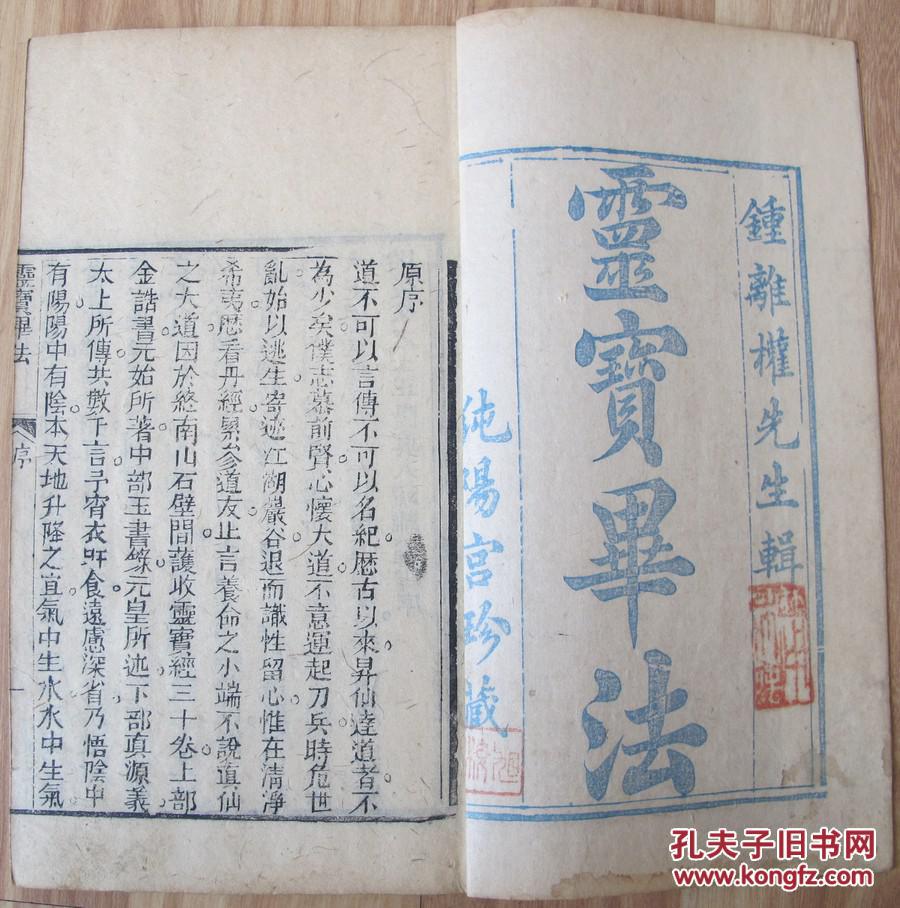 鍾離權先生輯
靈寶畢法
純陽宮珍藏
原序
道不可以言傳不可以名紀歷古以來昇仙達道者不
為少矣僕志慕前賢心懷大道不意運起刀兵時危世
亂始以逃生寄迹江湖巖谷退而識性留心惟在清淨
希夷歷看丹經累參道友止言養命之小端不說眞仙
之大道因於終南山石壁間護收靈寶經三十卷上部
金誥書元始所著中部玉書錄元皇所述下部真源義
太上所傳共數千言予宵衣旰食遠慮深省乃悟陰中
有陽陽中有陰本天地升降之宜氣中生水水中生氣
靈寶畢法
序
一
孔夫子旧书网
www.kongfz.com